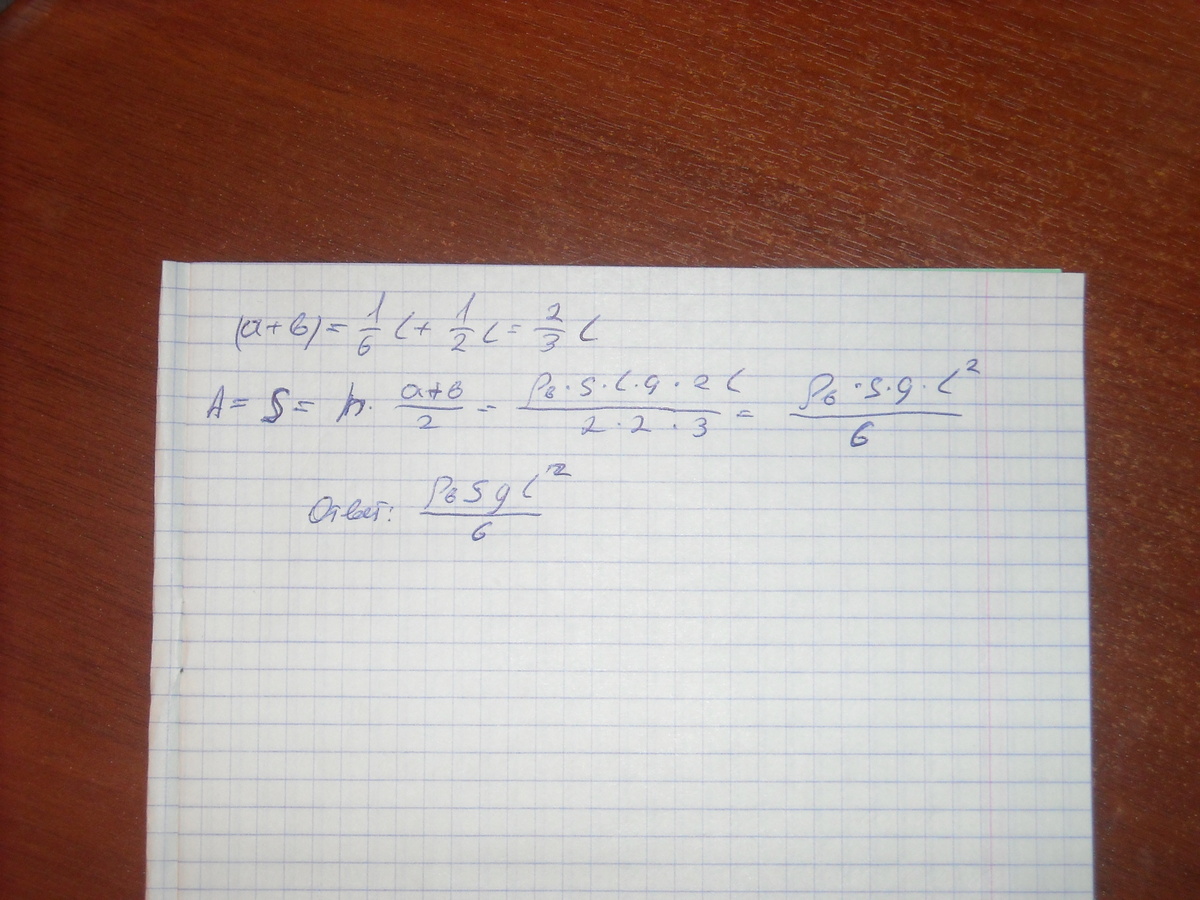 (a+b) = 1/6 l + 1/2 l = 2/3 l
A = S = h · (a+b)/2 = (ρв · S · l · g · 2 l)/(2 · 2 · 3) = (ρв · S · g · l²)/6
Ответ: (ρв S g l²)/6